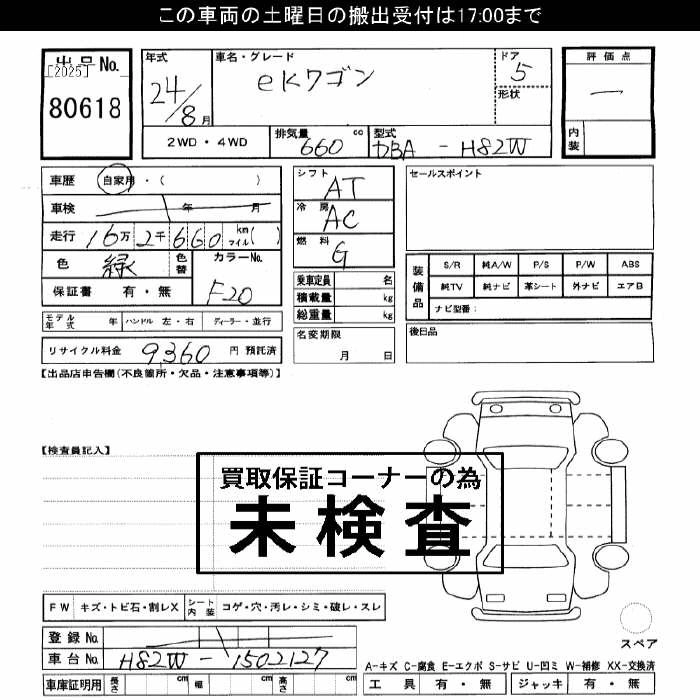 この車両の土曜日の搬出受付は17:00まで
出品No.
[2025]
80618
年式
24/8月
車名・グレード
eKワゴン
ドア
5
形状
評価点
一
内装
2WD・4WD
排気量
660 cc
型式
DBA - H82W
車歴 自家用・( )
車検 年 月
走行 16万2千660 km マイル( )
色 緑 色替
カラーNo.
F20
保証書 有・無
モデル年式 年 ハンドル 左・右 ディーラー・並行
リサイクル料金 9,360 円 預託済
シフト
AT
冷房
AC
燃料
G
乗車定員 名
積載量 kg
総重量 kg
名変期限
月 日
セールスポイント
装備品
S/R 純A/W P/S P/W ABS
純TV 純ナビ 革シート 外ナビ エアB
ナビ型番:
後日品
【出品店申告欄(不良箇所・欠品・注意事項等)】
【検査員記入】
買取保証コーナーの為
未検査
FW キズ・トビ石・割レX シート内装 コゲ・穴・汚レ・シミ・破レ・スレ
登録No.
車台No. H82W - 1502127
車庫証明用 長さ cm 幅 cm 高さ cm
スペア
A-キズ C-腐食 E-エクボ S-サビ U-凹ミ W-補修 XX-交換済
工具 有・無 ジャッキ 有・無